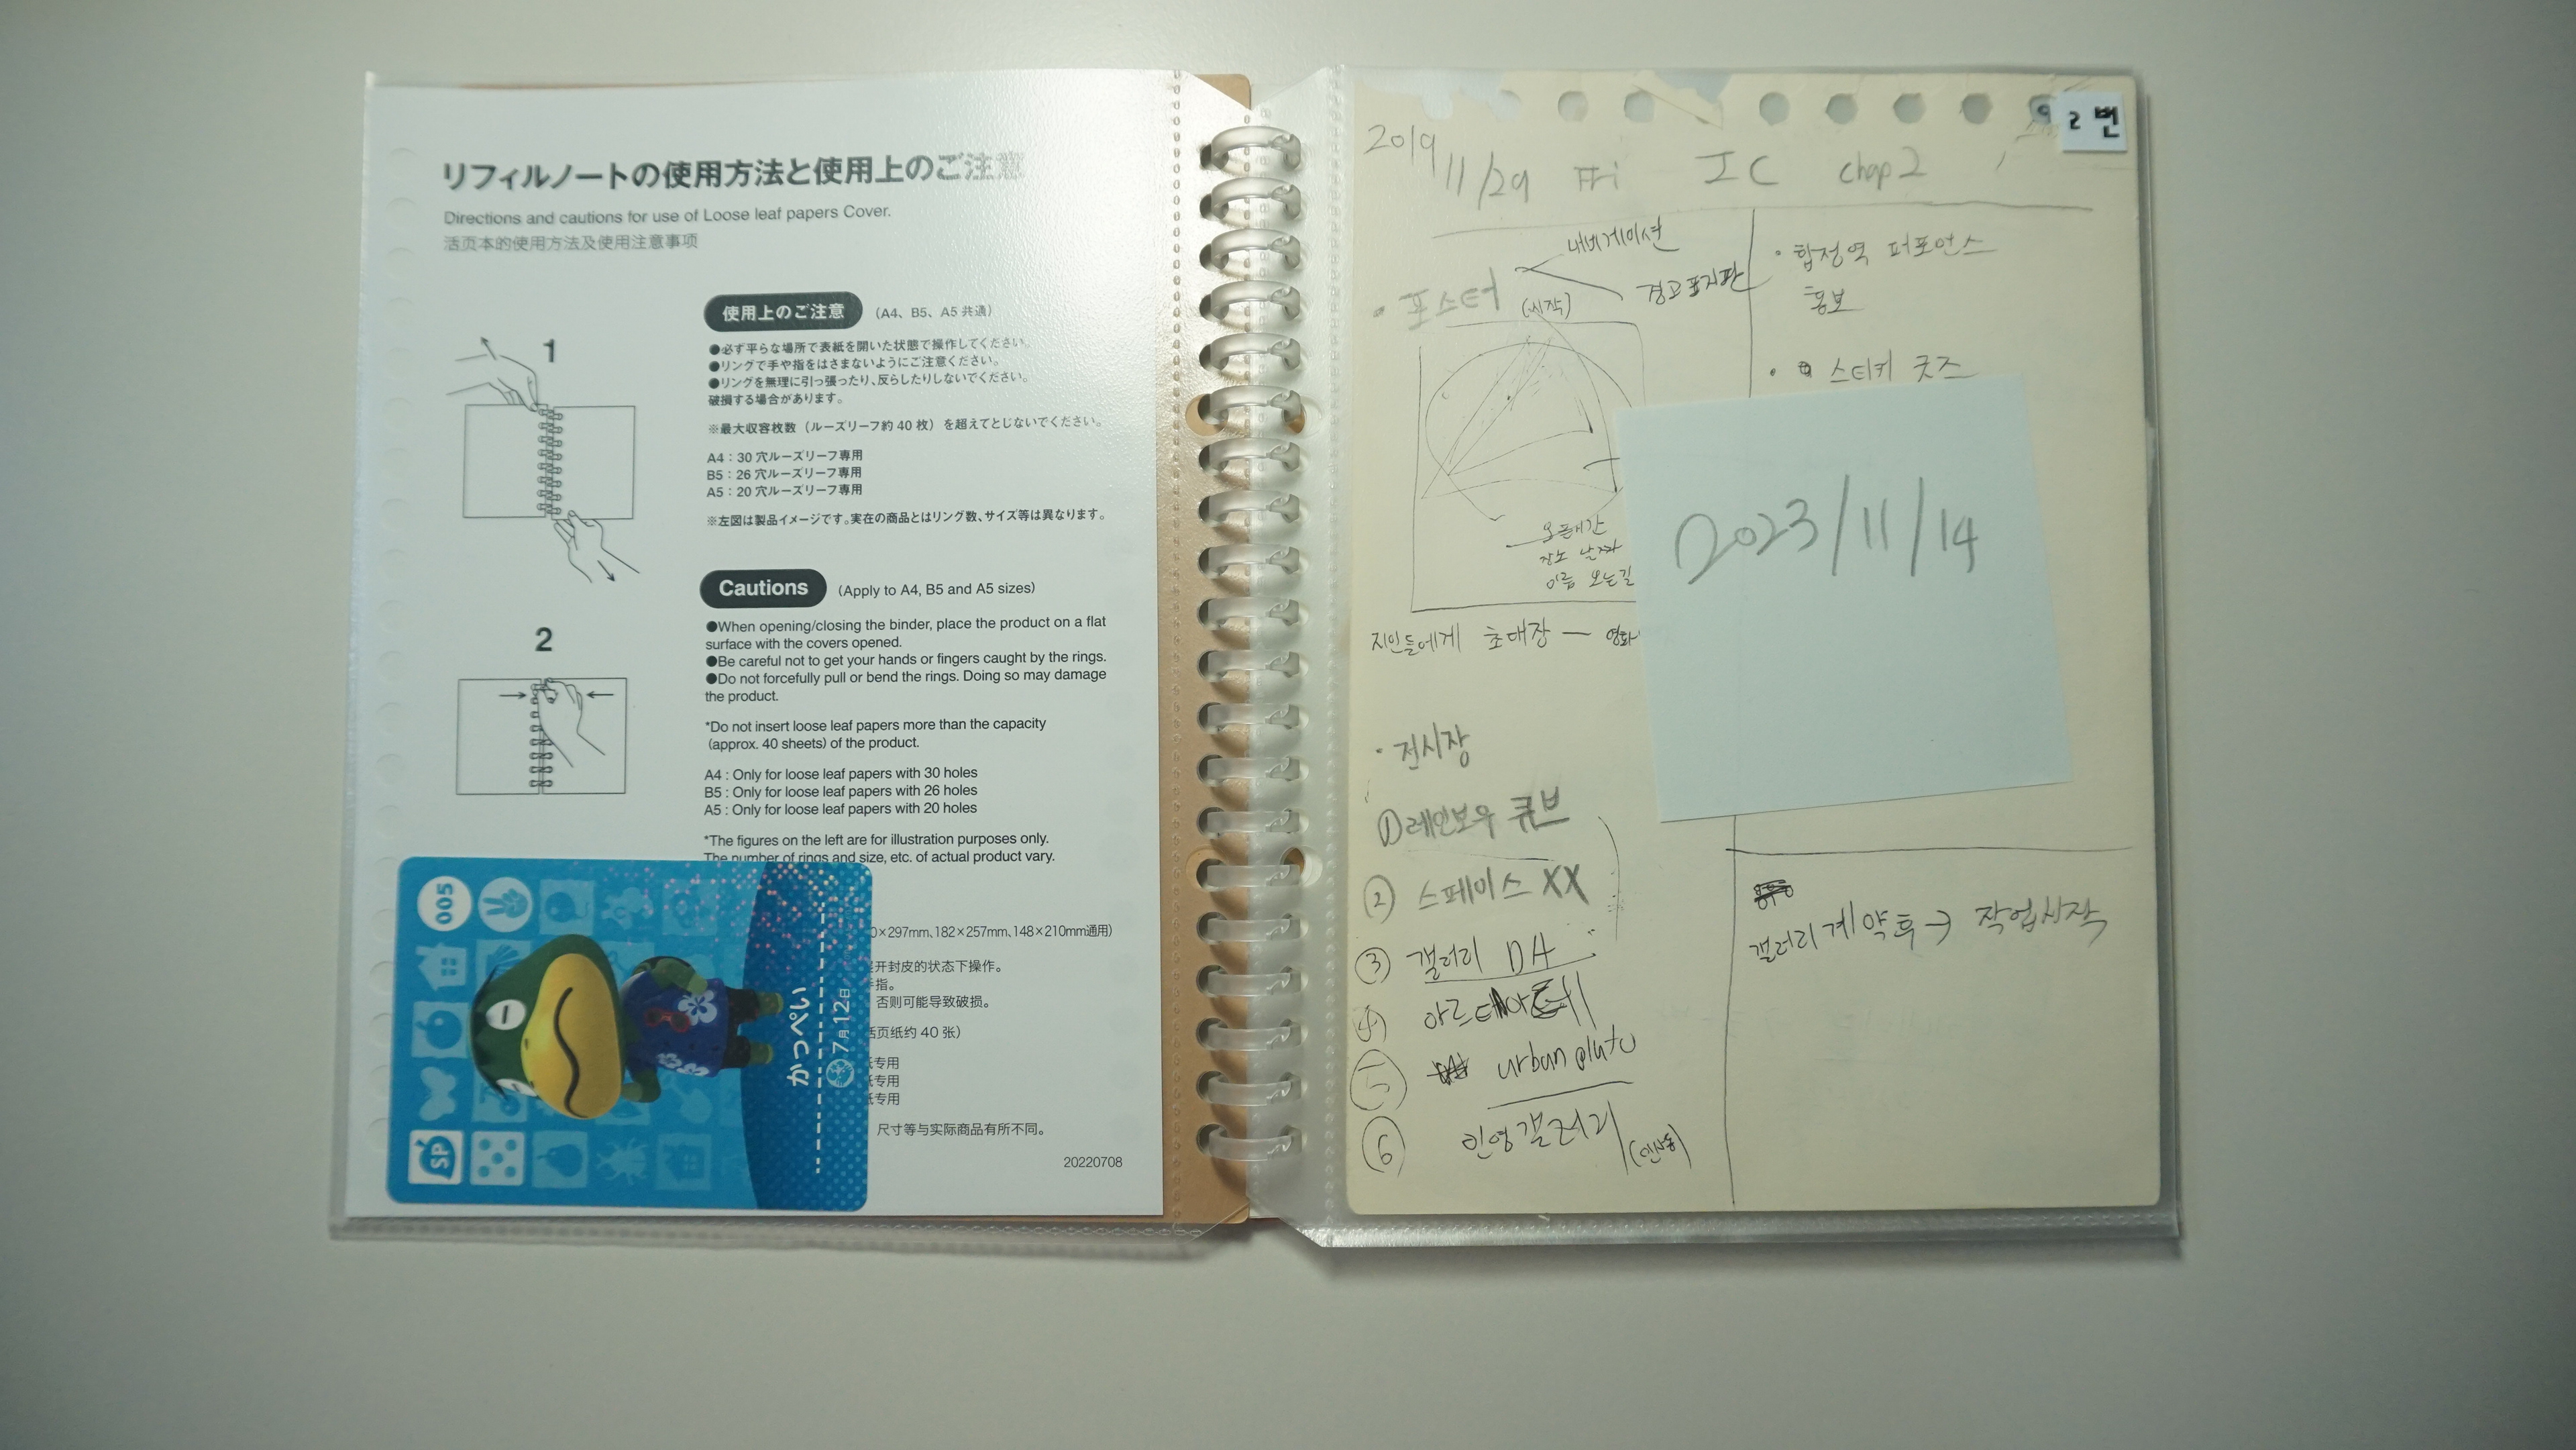 リフィルノートの使用方法と使用上のご注意
Directions and cautions for use of Loose leaf papers Cover.
活页本的使用方法及使用注意事项
1
使用上のご注意 (A4、B5、A5 共通)
●必ず平らな場所で表紙を開いた状態で操作してください。
●リングで手や指をはさまないようにご注意ください。
●リングを無理に引っ張ったり、反らしたりしないでください。
破損する場合があります。
※最大収容枚数(ルーズリーフ約 40 枚)を超えてとじないでください。
A4:30 穴ルーズリーフ専用
B5:26 穴ルーズリーフ専用
A5:20 穴ルーズリーフ専用
※左図は製品イメージです。実在の商品とはリング数、サイズ等は異なります。
Cautions (Apply to A4, B5 and A5 sizes)
2
●When opening/closing the binder, place the product on a flat
surface with the covers opened.
●Be careful not to get your hands or fingers caught by the rings.
●Do not forcefully pull or bend the rings. Doing so may damage
the product.
*Do not insert loose leaf papers more than the capacity
(approx. 40 sheets) of the product.
A4 : Only for loose leaf papers with 30 holes
B5 : Only for loose leaf papers with 26 holes
A5 : Only for loose leaf papers with 20 holes
*The figures on the left are for illustration purposes only.
The number of rings and size, etc. of actual product vary.
0×297mm、182×257mm、148×210mm通用)
开封皮的状态下操作。
手指。
否则可能导致破损。
活页纸约 40 张)
纸专用
纸专用
纸专用
尺寸等与实际商品有所不同。
20220708
005
SP
かっぺい
7月12日
2번
2019 11/29 Fri IC chap2
내비게이션
경고표지판
• 포스터 (시작)
오픈시간
장소 날짜
이름 오는길
지인들에게 초대장 — 영화
• 전시장
① 레인보우 큐브
② 스페이스 XX
③ 갤러리 DA
④
⑤ urban pluto
⑥ 인영갤러리 (인사동)
• 합정역 퍼포먼스
홍보
• 스티커 굿즈
2023/11/14
갤러리 계약 후 → 작업시작